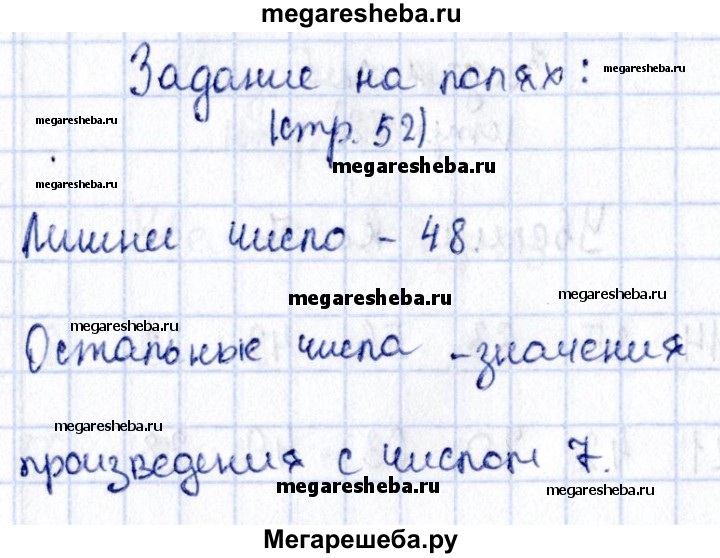 megaresheba.ru
Задание на полях:
megaresheba.ru
megaresheba.ru
(стр. 52)
megaresheba.ru
megaresheba.ru
Лишнее число - 48.
megaresheba.ru
megaresheba.ru
megaresheba.ru
Остальные числа - значения
megaresheba.ru
произведения с числом 7.
megaresheba.ru
megaresheba.ru
Мегарешеба.ру